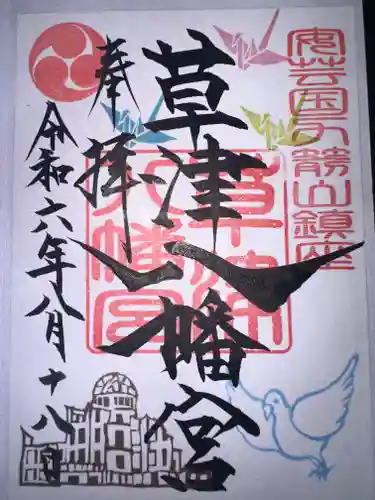 安芸国力箭山鎮座
奉拝
草津八幡宮
草津八幡宮
令和六年八月十八日